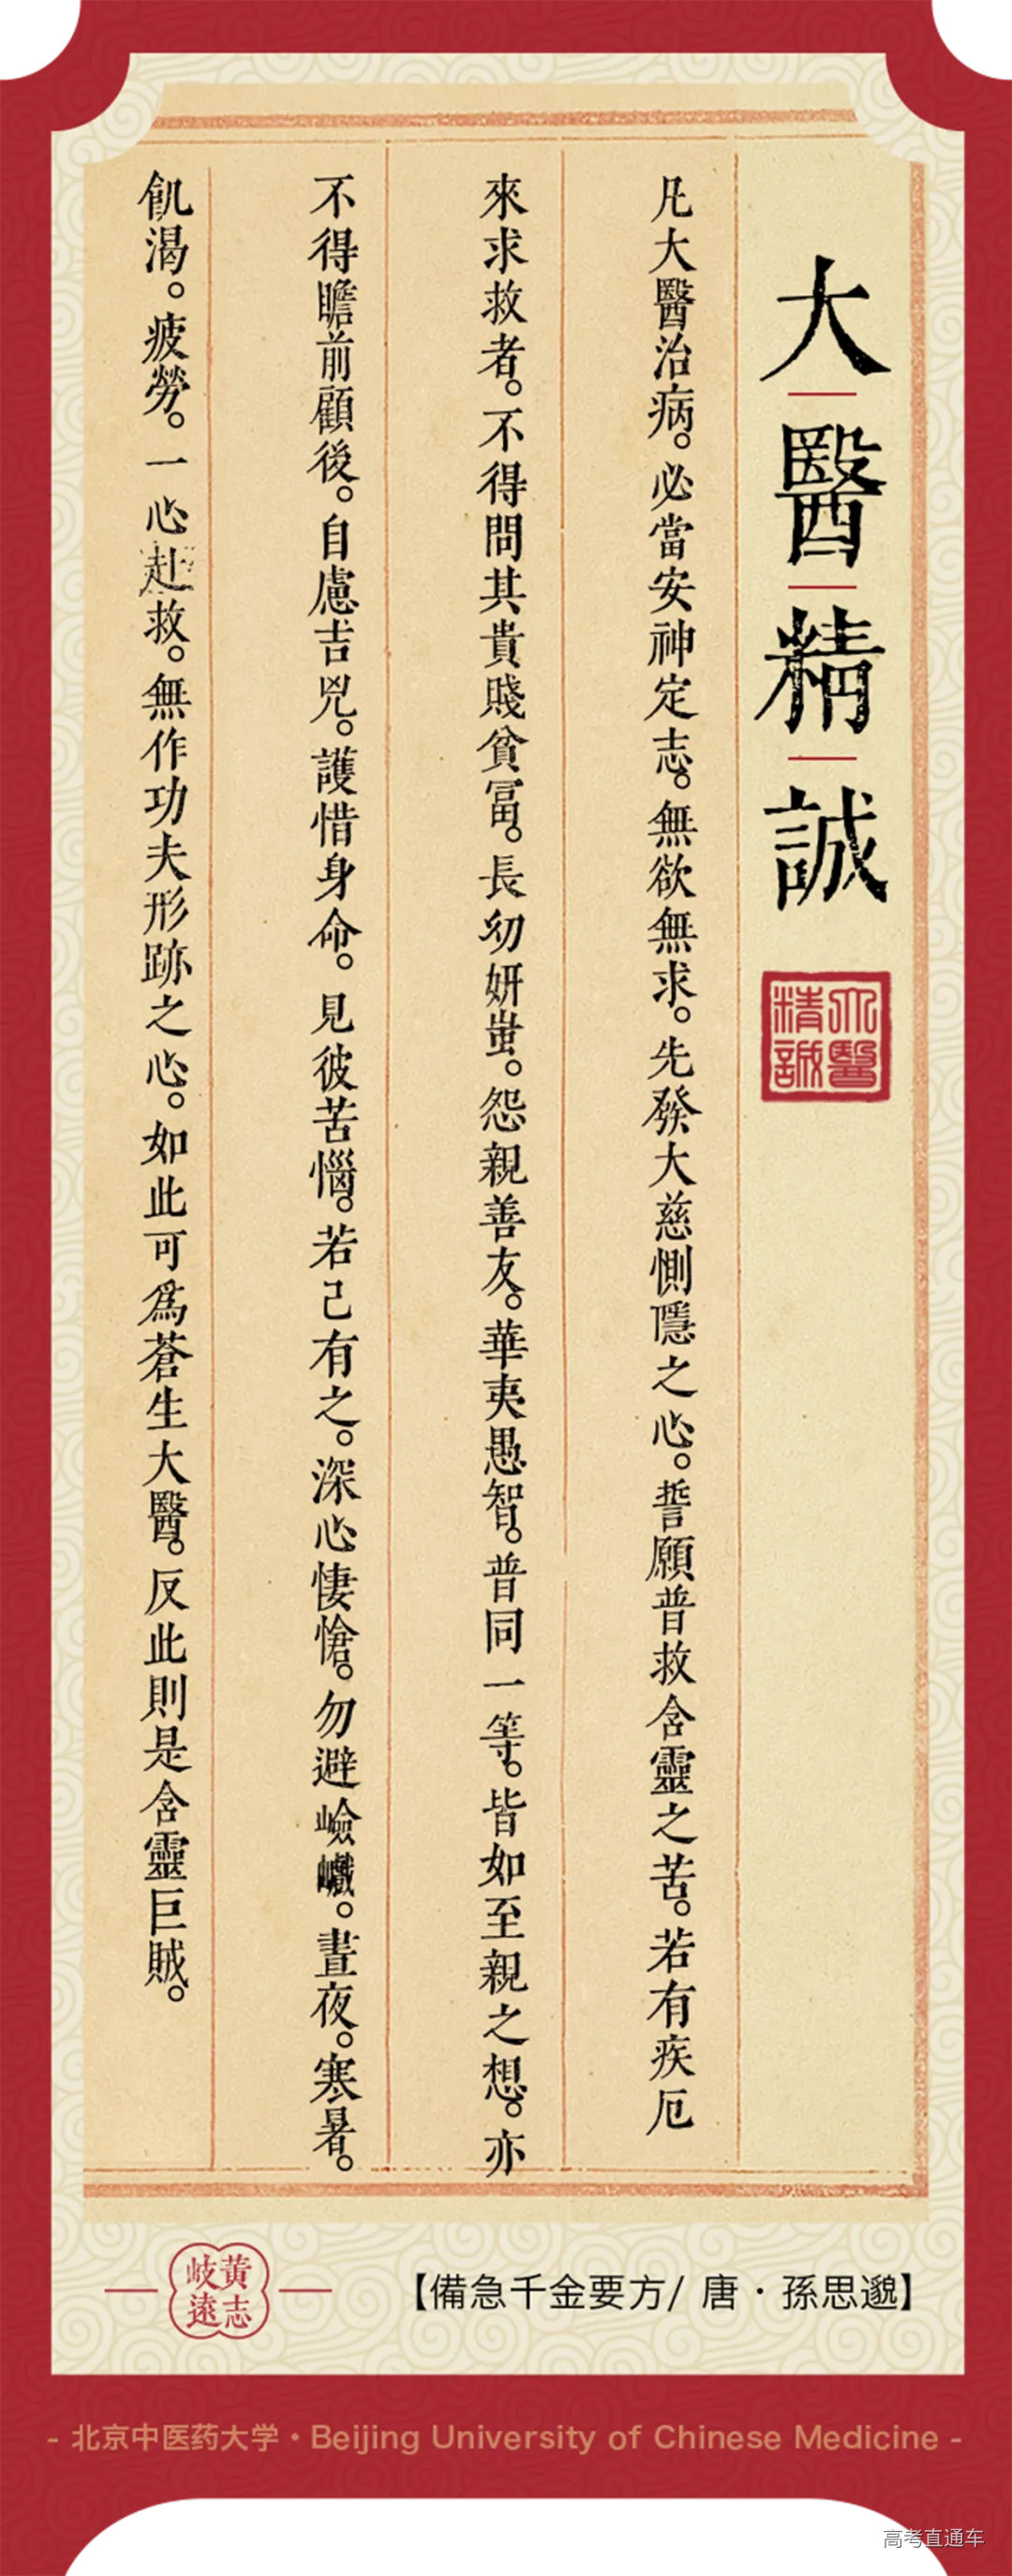 大醫精誠
大醫精誠
凡大醫治病。必當安神定志。無欲無求。先發大慈惻隱之心。誓願普救含靈之苦。若有疾厄
來求救者。不得問其貴賤貧冨。長幼妍蚩。怨親善友。華夷愚智。普同一等。皆如至親之想。亦
不得瞻前顧後。自慮吉兇。護惜身命。見彼苦惱。若己有之。深心悽愴。勿避嶮巇。晝夜。寒暑。
飢渴。疲勞。一心赴救。無作功夫形跡之心。如此可爲蒼生大醫。反此則是含靈巨賊。
岐黄志遠
【備急千金要方/ 唐·孫思邈】
- 北京中医药大学·Beijing University of Chinese Medicine -
高考直通车